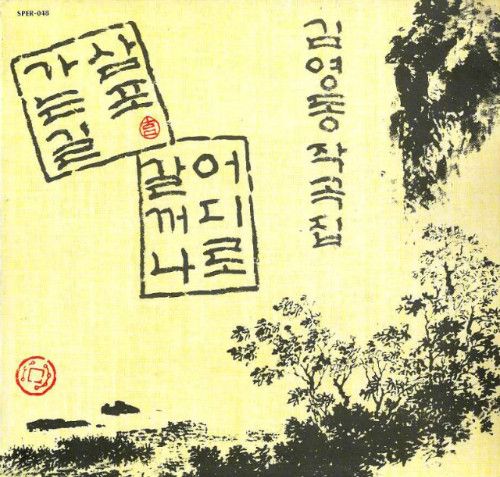 SPER-048
김영동작곡집
삼포
가는길
어디로
갈꺼나